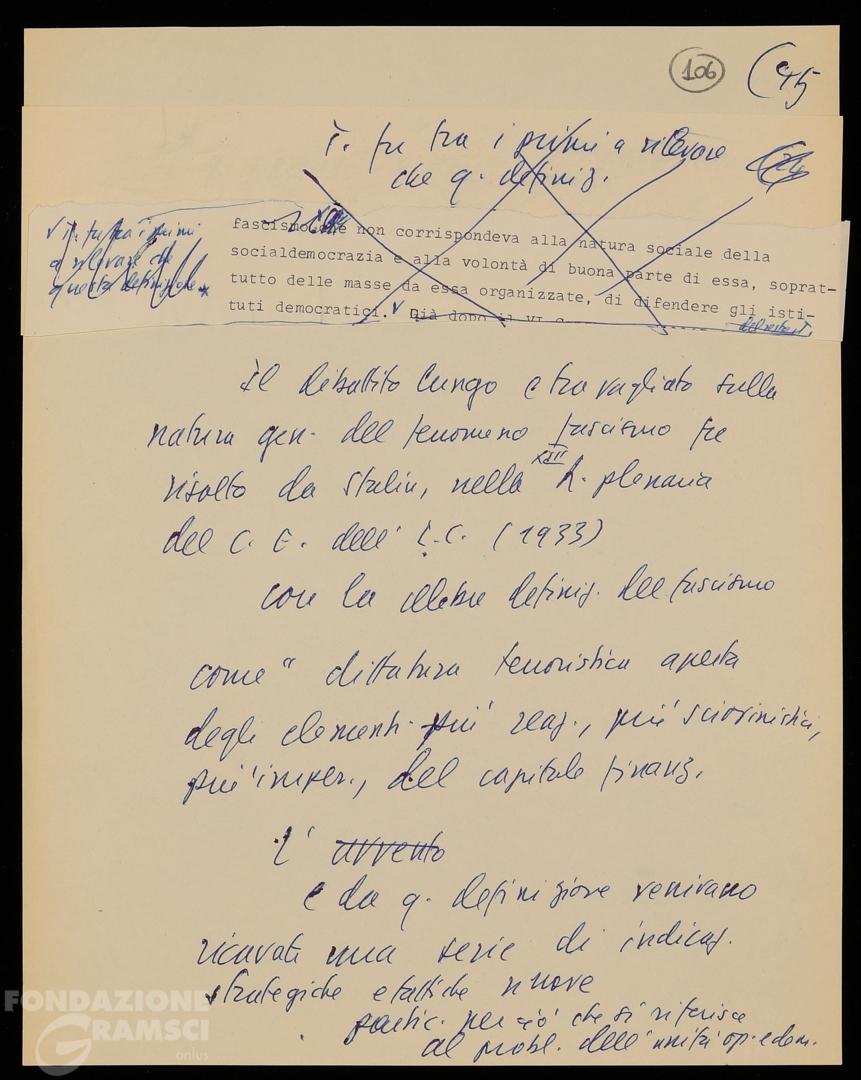 106
T. fu tra i primi a rilevare
che q. definiz.
v T. fu tra i primi
a rilevare che
questa definizione *
fascismo che non corrispondeva alla natura sociale della
socialdemocrazia e alla volontà di buona parte di essa, soprat-
tutto delle masse da essa organizzate, di difendere gli isti-
tuti democratici. v Già dopo il VI c
Il dibattito lungo e travagliato sulla
natura gen. del fenomeno fascismo fu
XIII
risolto da Stalin, nella R. plenaria
del C. E. dell' I.C. (1933)
con la celebre definiz. del fascismo
come " dittatura terroristica aperta
degli elementi più reaz., più sciovinistici,
più imper., del capitale finanz.
L' avvento
e da q. definizione venivano
ricavati una serie di indicaz.
strategiche e tattiche nuove
partic. per ciò che si riferisce
al probl. dell'unità op. e dem.
FONDAZIONE
GRAMSCI
onlus